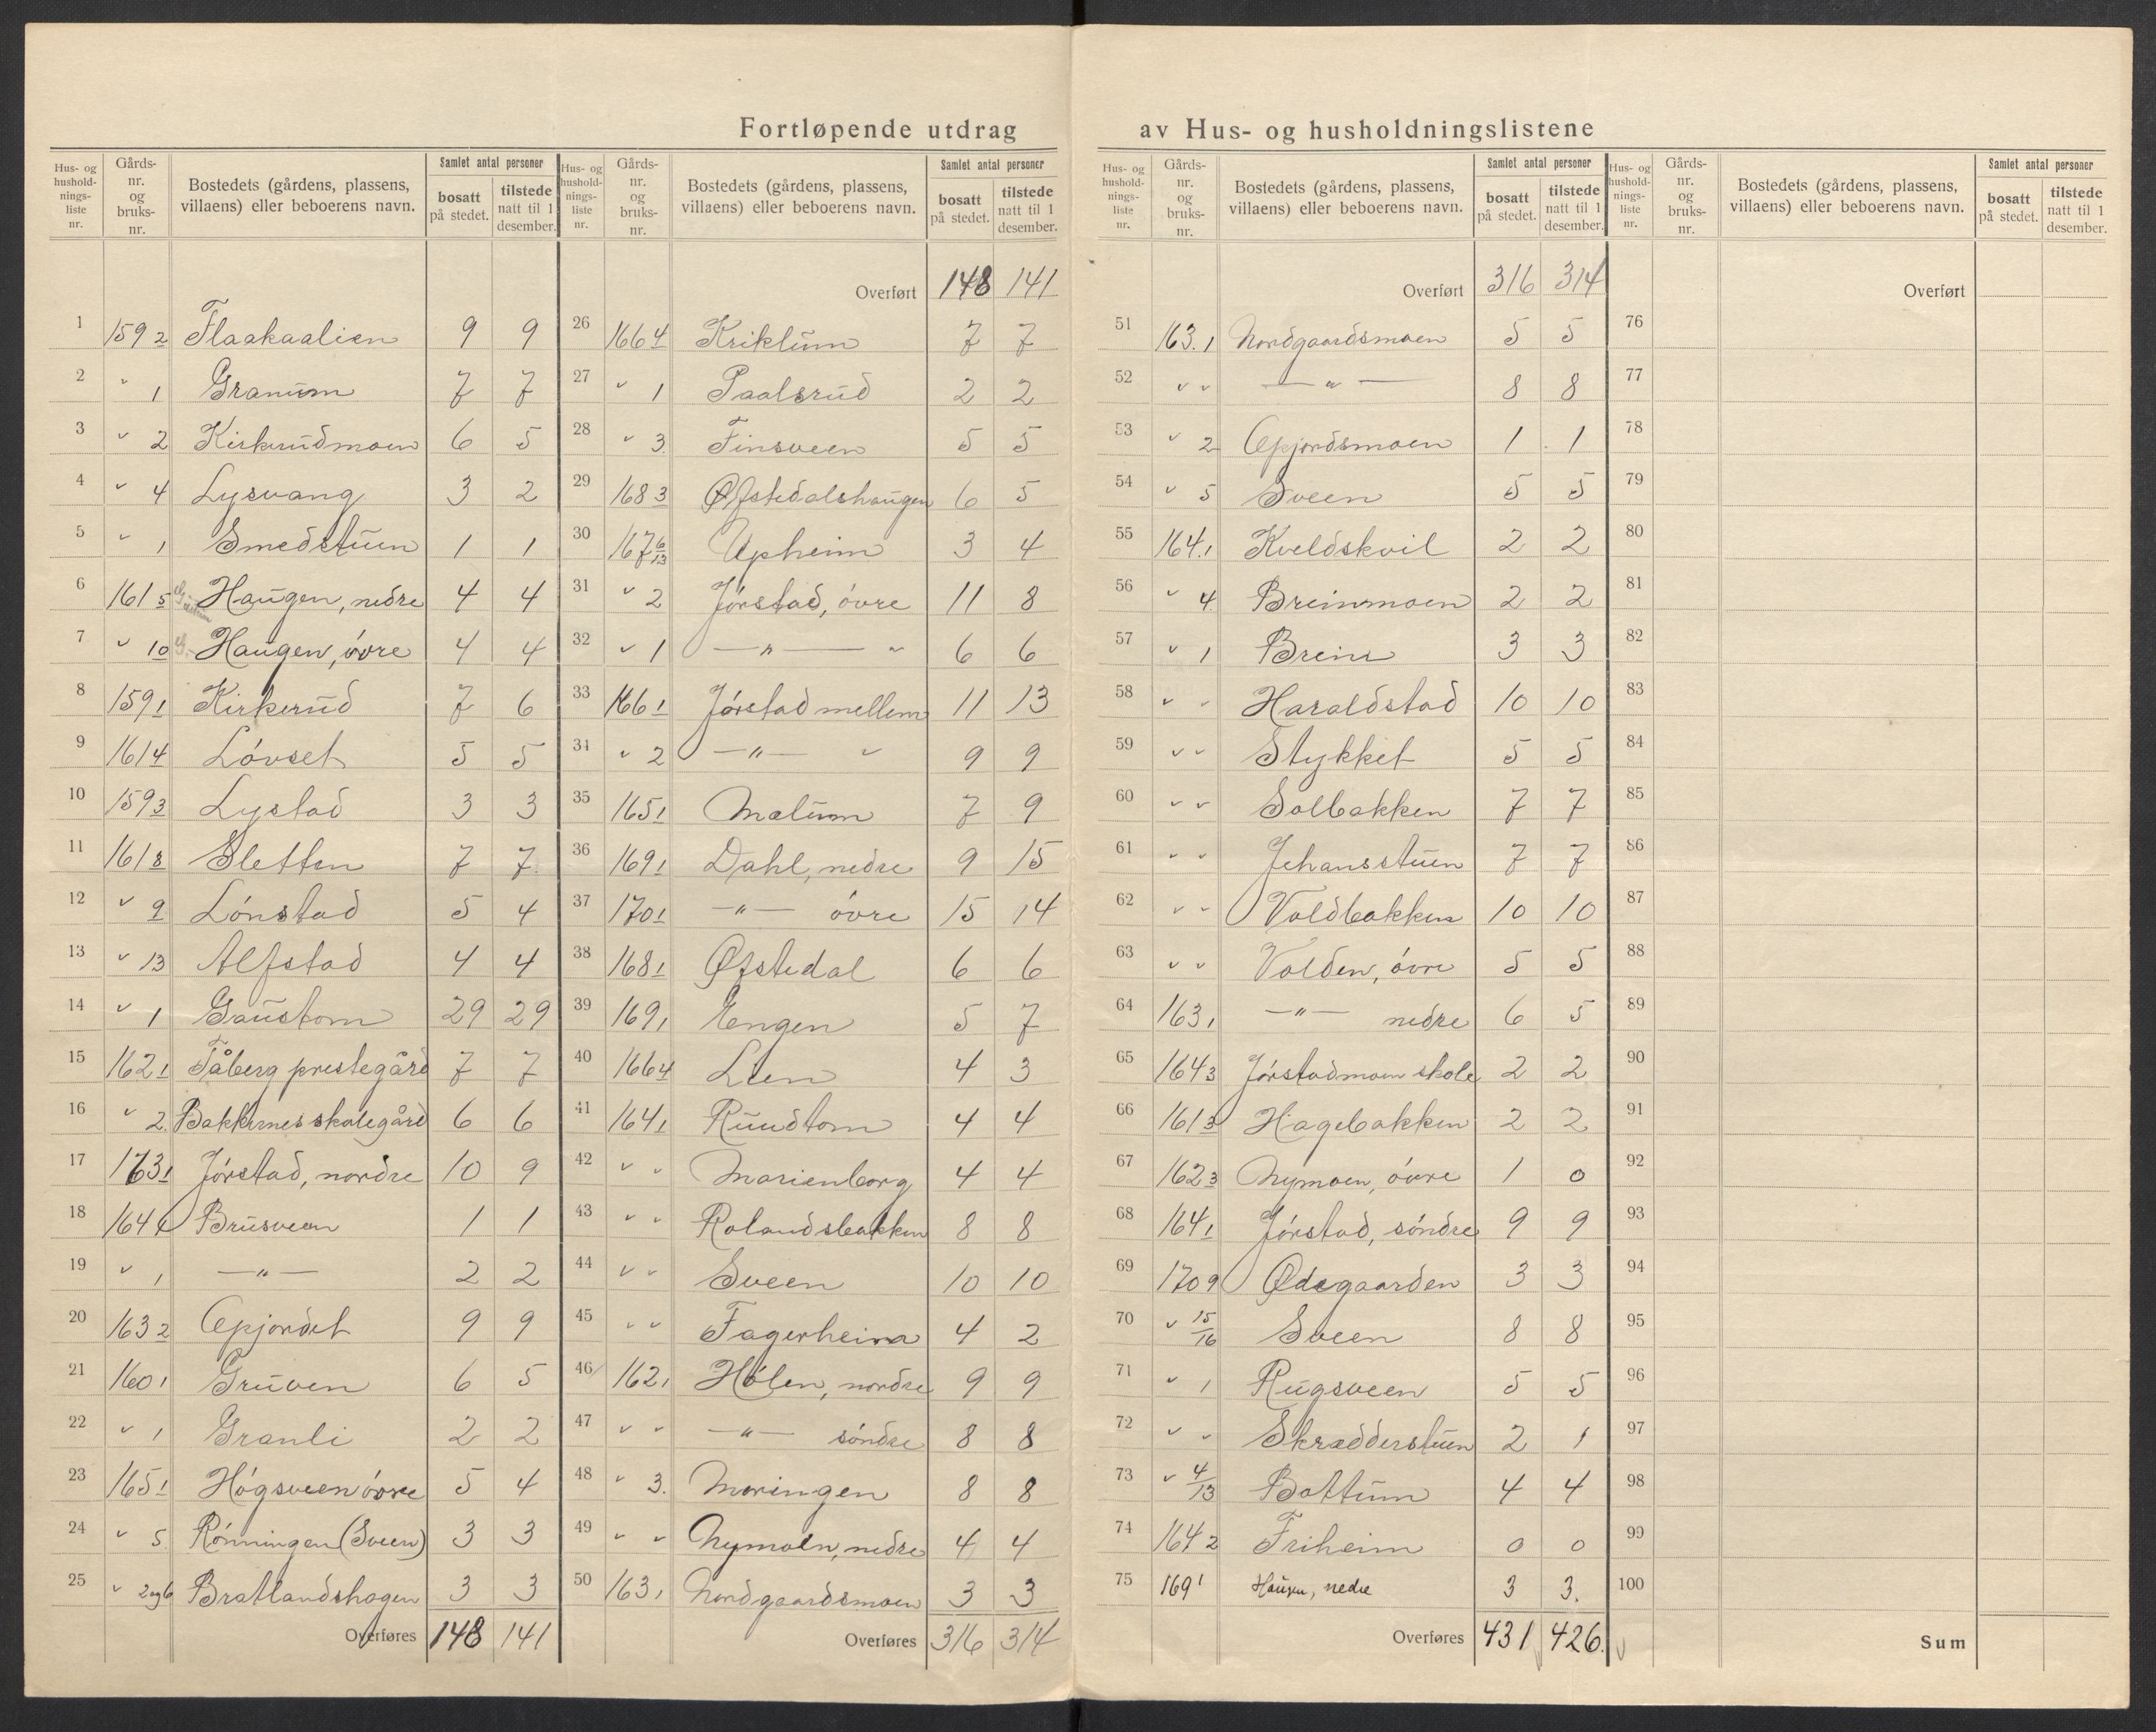 Fortløpende utdrag av Hus- og husholdningslistene
Hus- og hushold-nings-liste nr. | Gårds-nr. og bruks-nr. | Bostedets (gårdens, plassens, villaens) eller beboerens navn. | Samlet antal personer | bosatt på stedet. | tilstede natt til 1 desember.
1 159 2 Flaakaalien 9 9
2 " 1 Granum 7 7
3 " 2 Kirkerudmoen 6 5
4 " 4 Lysvang 3 2
5 " 1 Smedstuen 1 1
6 161 5 Haugen, nedre 4 4
7 " 10 Haugen, øvre 4 4
8 159 1 Kirkerud 7 6
9 161 4 Lóvset 5 5
10 159 3 Lystad 3 3
11 161 8 Sletten 7 7
12 " 9 Lónstad 5 4
13 " 13 Alfstad 4 4
14 " 1 Gaustom 29 29
15 162 1 Tåberg prestegård 7 7
16 " 2. Bakkernes skolegård 6 6
17 163 1 Jórstad, nordre 10 9
18 164 Brusveen 1 1
19 " 1 — " — 2 2
20 163 2 Opjordet 9 9
21 160 1 Gruven 6 5
22 " 1 Granli 2 2
23 165 1 Hógsveen óvre 5 4
24 " 5 Rónningen (Sveen) 3 3
25 " 2og6 Bratlandshagen 3 3
Overføres 148 141
Hus- og hushold-nings-liste nr. | Gårds-nr. og bruks-nr. | Bostedets (gårdens, plassens, villaens) eller beboerens navn. | Samlet antal personer | bosatt på stedet. | tilstede natt til 1 desember.
Overført 148 141
26 166 4 Kriklum 7 7
27 " 1 Paalsrud 2 2
28 " 3. Finsveen 5 5
29 168 3 Øfstedalshaugen 6 5
30 167 6/13 Upheim 3 4
31 " 2 Jórstad, óvre 11 8
32 " 1 — " — " 6 6
33 166 1 Jórstad mellem 11 13
34 " 2 — " — " 9 9
35 165 1 Mælum 7 9
36 169 1 Dahl, nedre 9 15
37 170 1 — " — óvre 15 14
38 168 1 Øfstedal 6 6
39 169 1 Engen 5 7
40 166 4 Lien 4 3
41 164 1 Rundtom 4 4
42 " " Marienborg 4 4
43 " " Rolandsbakken 8 8
44 " " Sveen 10 10
45 " " Fagerheim 4 2
46 162 1 Hólen, nordre 9 9
47 " " — " — sóndre 8 8
48 " 3. Moringen 8 8
49 " " Nymoen, nedre 4 4
50 163 1 Nordgaardsmoen 3 3
Overføres 316 314
Hus- og hushold-nings-liste nr. | Gårds-nr. og bruks-nr. | Bostedets (gårdens, plassens, villaens) eller beboerens navn. | Samlet antal personer | bosatt på stedet. | tilstede natt til 1 desember.
Overført 316 314
51 163. 1 Nordgaardsmoen 5 5
52 " " — " — 8 8
53 " 2 Opjordsmoen 1 1
54 " 5 Sveen 5 5
55 164. 1 Kveldskvil 2 2
56 " 4 Breinmoen 2 2
57 " 1 Brein 3 3
58 " " Haraldstad 10 10
59 " " Stykket 5 5
60 " " Solbakken 7 7
61 " " Jehansstuen 7 7
62 " " Voldbakken 10 10
63 " " Volden, óvre 5 5
64 163 1 — " — nedre 6 5
65 164 3 Jórstadmoen skole 2 2
66 161 3 Hagebakken 2 2
67 162 3 Nymoen, óvre 1 0
68 164 1 Jórstad, sóndre 9 9
69 170 9 Ødegaarden 3 3
70 " 15/16 Sveen 8 8
71 " 1 Rugsveen 5 5
72 " " Skrædderstuen 2 1
73 " 4/13 Bottum 4 4
74 164 2 Friheim 0 0
75 169 1 Haugen, nedre 3 3.
Overføres 431 426.
Hus- og hushold-nings-liste nr. | Gårds-nr. og bruks-nr. | Bostedets (gårdens, plassens, villaens) eller beboerens navn. | Samlet antal personer | bosatt på stedet. | tilstede natt til 1 desember.
Overført
76
77
78
79
80
81
82
83
84
85
86
87
88
89
90
91
92
93
94
95
96
97
98
99
100
Sum